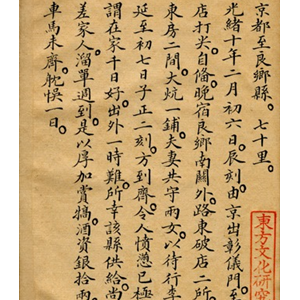 京都至良鄉縣。七十里。
光緒十年二月初六日。辰刻由京出彰儀門至
店打尖。自備。晚宿良鄉南關外路東破店二所
東房二間。大炕一鋪。夫妻共守兩女。以待行李
延至初七日子正二刻。方到齊。令人憤懣已極
謂在家千日好。出外一時難。所幸該縣供給尚
差家人溜單週到。是以厚加賞犒酒資銀拾兩
車馬未齊。耽悞一日。
東方文化研